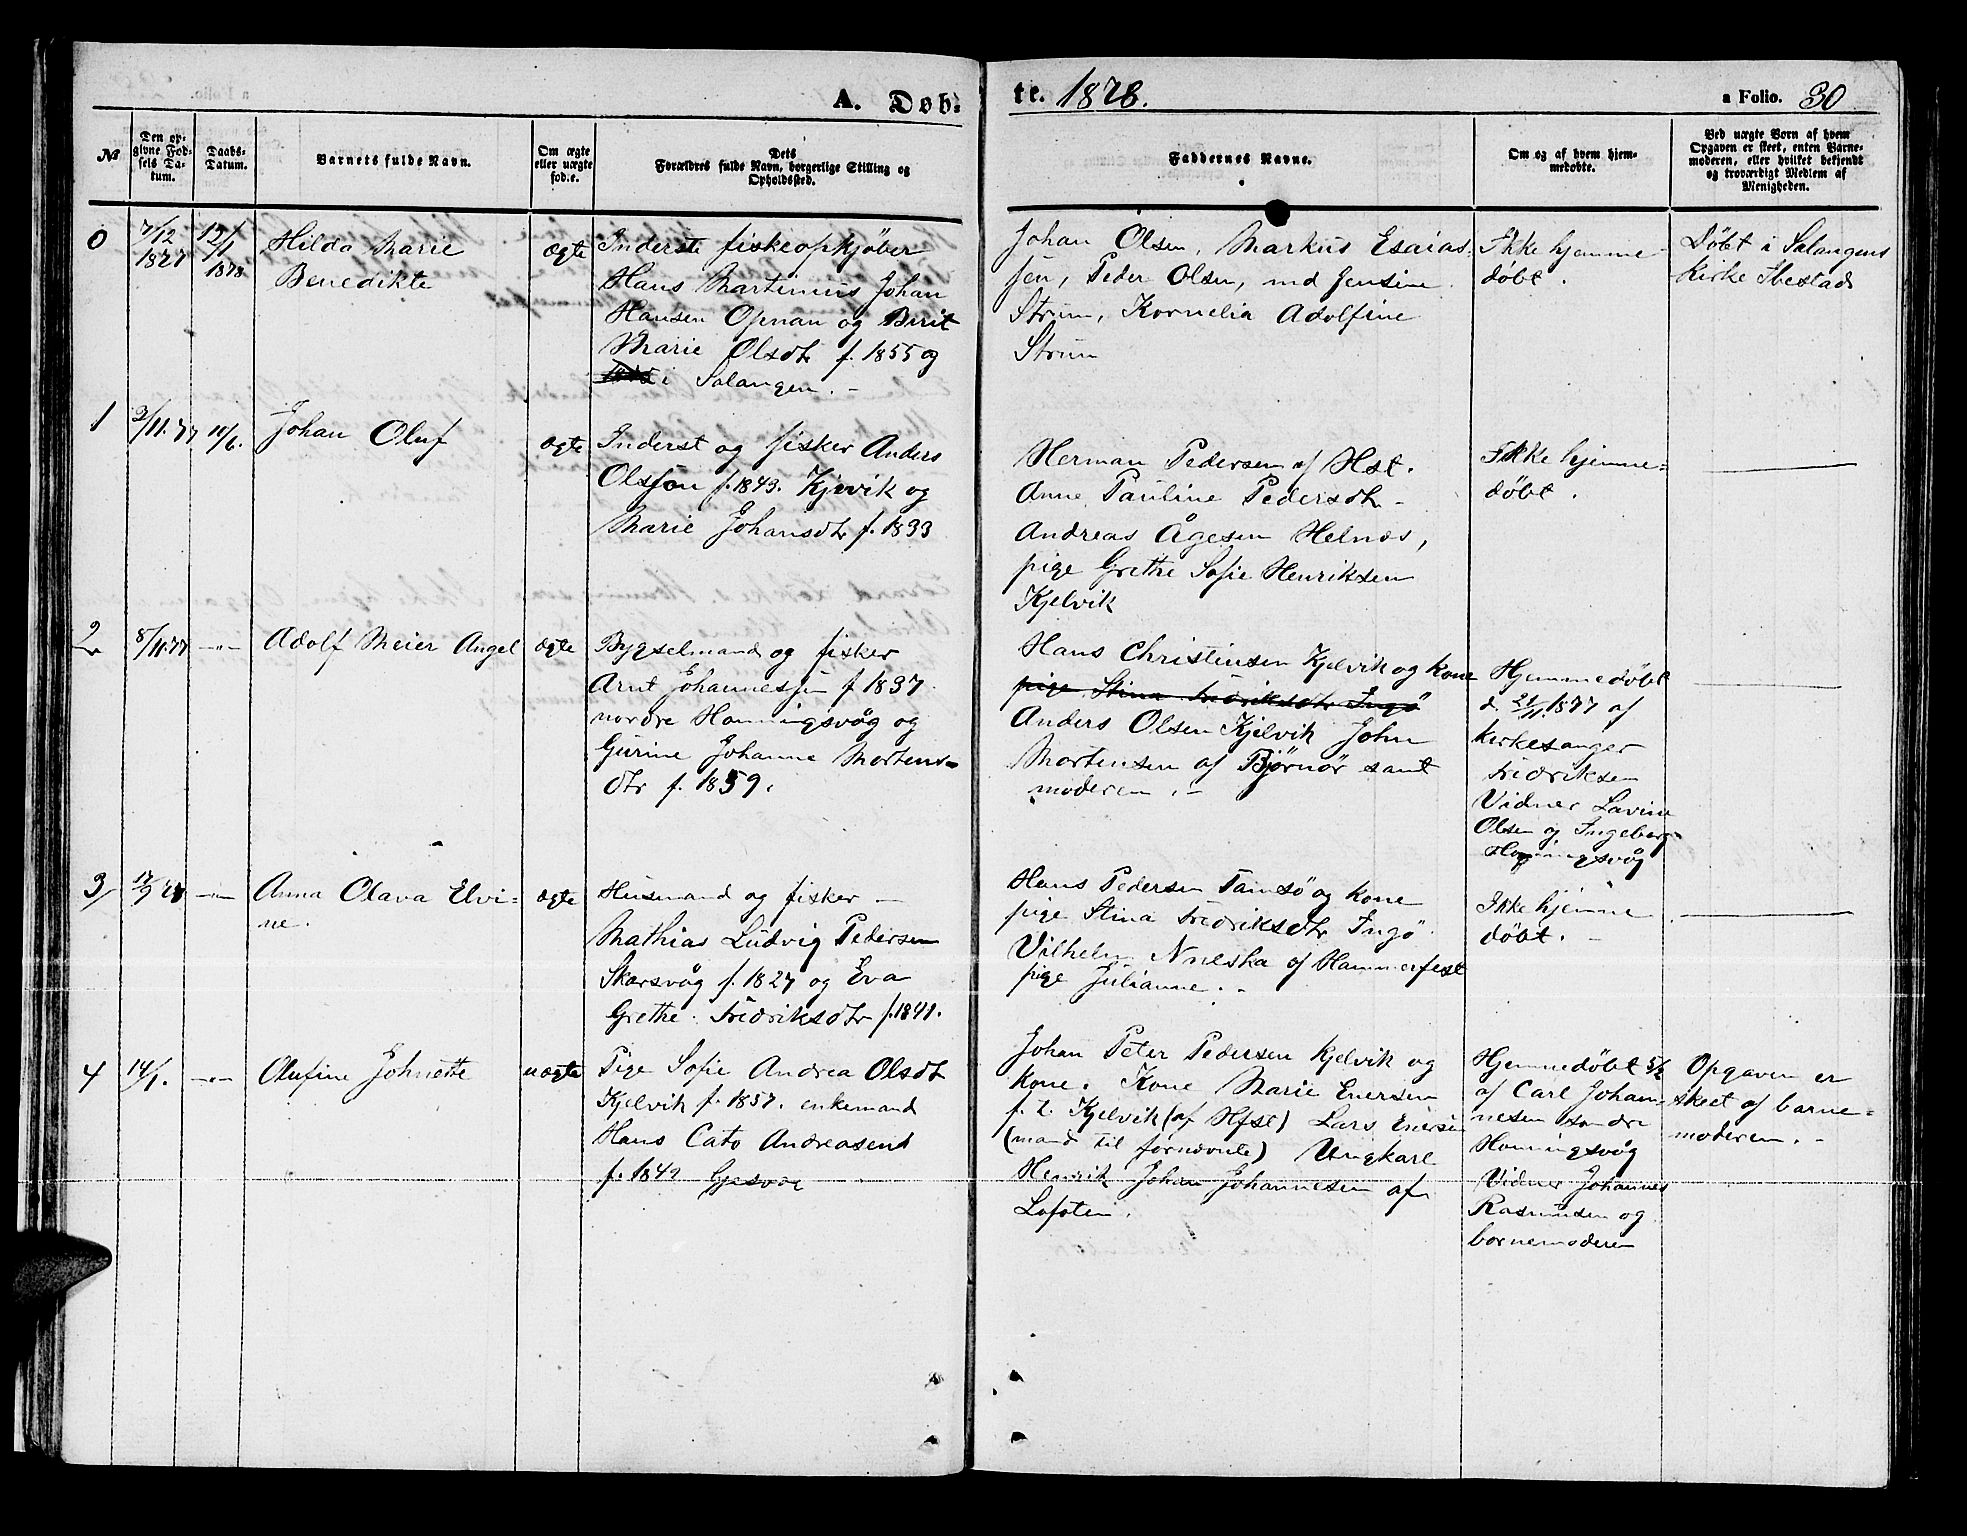 A. Døb-
te. 1878.
a Folio. 30
№
Den op-
givne Fød-
sels Da-
tum.
Daabs-
Datum.
Barnets fulde Navn.
Om ægte
eller uægte
fød.e.
Dets
Forældres fulde Navn, borgerlige Stilling og
Opholdssted.
Faddernes Navne.
Om og af hvem hjem-
medøbte.
Ved uægte Børn af hvem
Opgaven er skeet, enten Barne-
moderen, eller hvilket bekjendt
og troværdigt Medlem af
Menigheden.
0
7/12
1877
12/1
1878
Hilda Marie
Benedikte
ægte
Inderste fiskeopkjøber
Hans Martinius Johan
Hansen Opnan og Berit
Marie Olsdtr f. 1855 og
i Salangen. -
Johan Olsen, Markus Esaias-
sen, Peder Olsen, md Jensine
Strum, Kornelia Adolfine
Strum
Ikke hjemme
døbt.
Døbt i Salangens
Kirke Ibestad
1
3/11.77
11/1.
Johan Oluf
ægte
Inderst og fisker Anders
Olsson f. 1843. Kjelvik og
Marie Johansdtr f. 1833
Herman Pedersen af Hst.
Anne Pauline Pedersdtr -
Andreas Ågesen Helnæs,
pige Grethe Sofie Henriksen
Kjelvik
Ikke hjemme=
døbt.
2
8/11.77
-"-
Adolf Meier Angel
ægte
Bygselmand og fisker
Arnt Johannessen f 1837
nordre Honningsvåg og
Gurine Johanne Mortens=
dtr f. 1859.
Hans Christensen Kjelvik og kone
pige Stina Fredriksdtr Ingö
Anders Olsen Kjelvik John
Mortensen af Bjørnør samt
moderen. -
Hjemmedøbt
d. 21/11.1877 af
kirkesanger
Fredriksen
Vidner Lavine
Olsen og Ingeborg
Honningsvåg
3
-"-
Anna Olava Elvi-
ne.
ægte
Husmand og fisker -
Mathias Ludvig Pedersen
Skarsvåg f. 1827 og Eva
Grethe Fredriksdtr f. 1841.
Hans Pedersen Tamsö og kone
pige Stina Fredriksdtr Ingö
Vilhelm af Hammerfest
pige Julianne. -
Ikke hjemme
døbt. -
4
14/1.
-"-
Olufine Johnette
uægte
Pige Sofie Andrea Olsdtr
Kjelvik f. 1857. enkemand
Hans Cato Andreasen
f. 1842 Gjesvær
Johan Peter Pedersen Kjelvik og
kone. Kone Marie Enersen
f. t. Kjelvik (af Hfst) Lars Enersen
(mand til førnævnte) Ungkarl
Henrik Johan Johannesen af
Lofoten.
Hjemmedøbt 5/2
af Carl Johan-
nesen søndre
Honningsvåg
Vidner Johannes
Rasmusen og
barnemoderen
Opgaven er
skeet af barne=
moderen. -